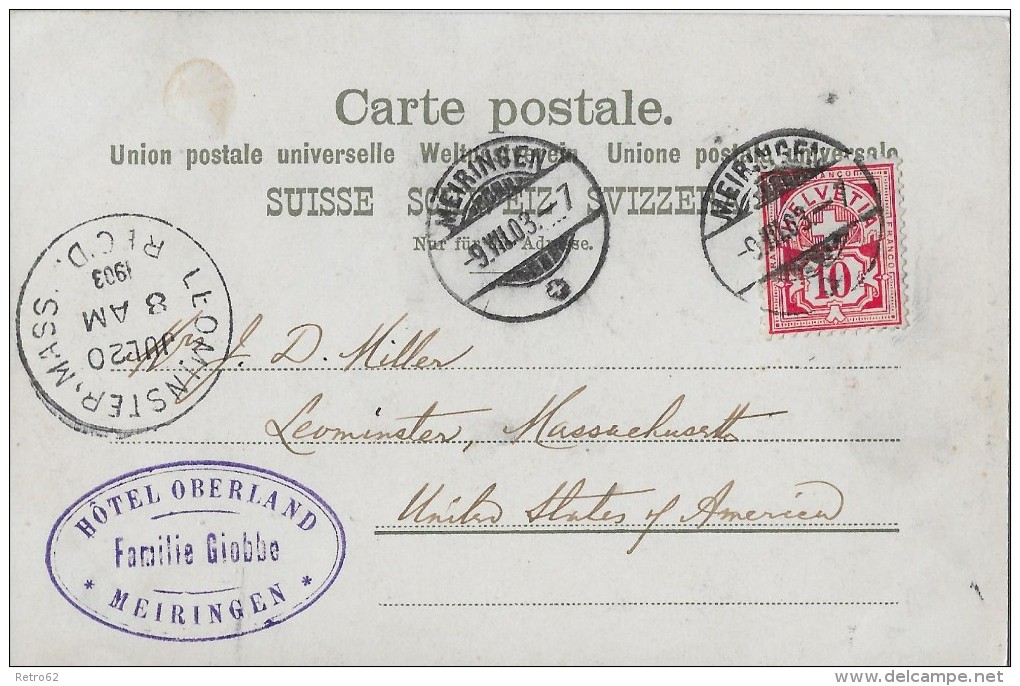 Carte postale.
Union postale universelle Weltpostverein Unione postale universale
SUISSE SCHWEIZ SVIZZERA
Nur für die Adresse.
MEIRINGEN
-9.VII.03.-7
MEIRINGEN
-9.VII.03.-
FRANCO
HELVETIA
FRANCO
10
LEOMINSTER, MASS.
JUL 20
8 AM
1903
REC'D.
Mr. J. D. Miller
Leominster, Massachusetts
United States of America
HÔTEL OBERLAND
Familie Giobbe
* MEIRINGEN *
Retro62
delcampe.net